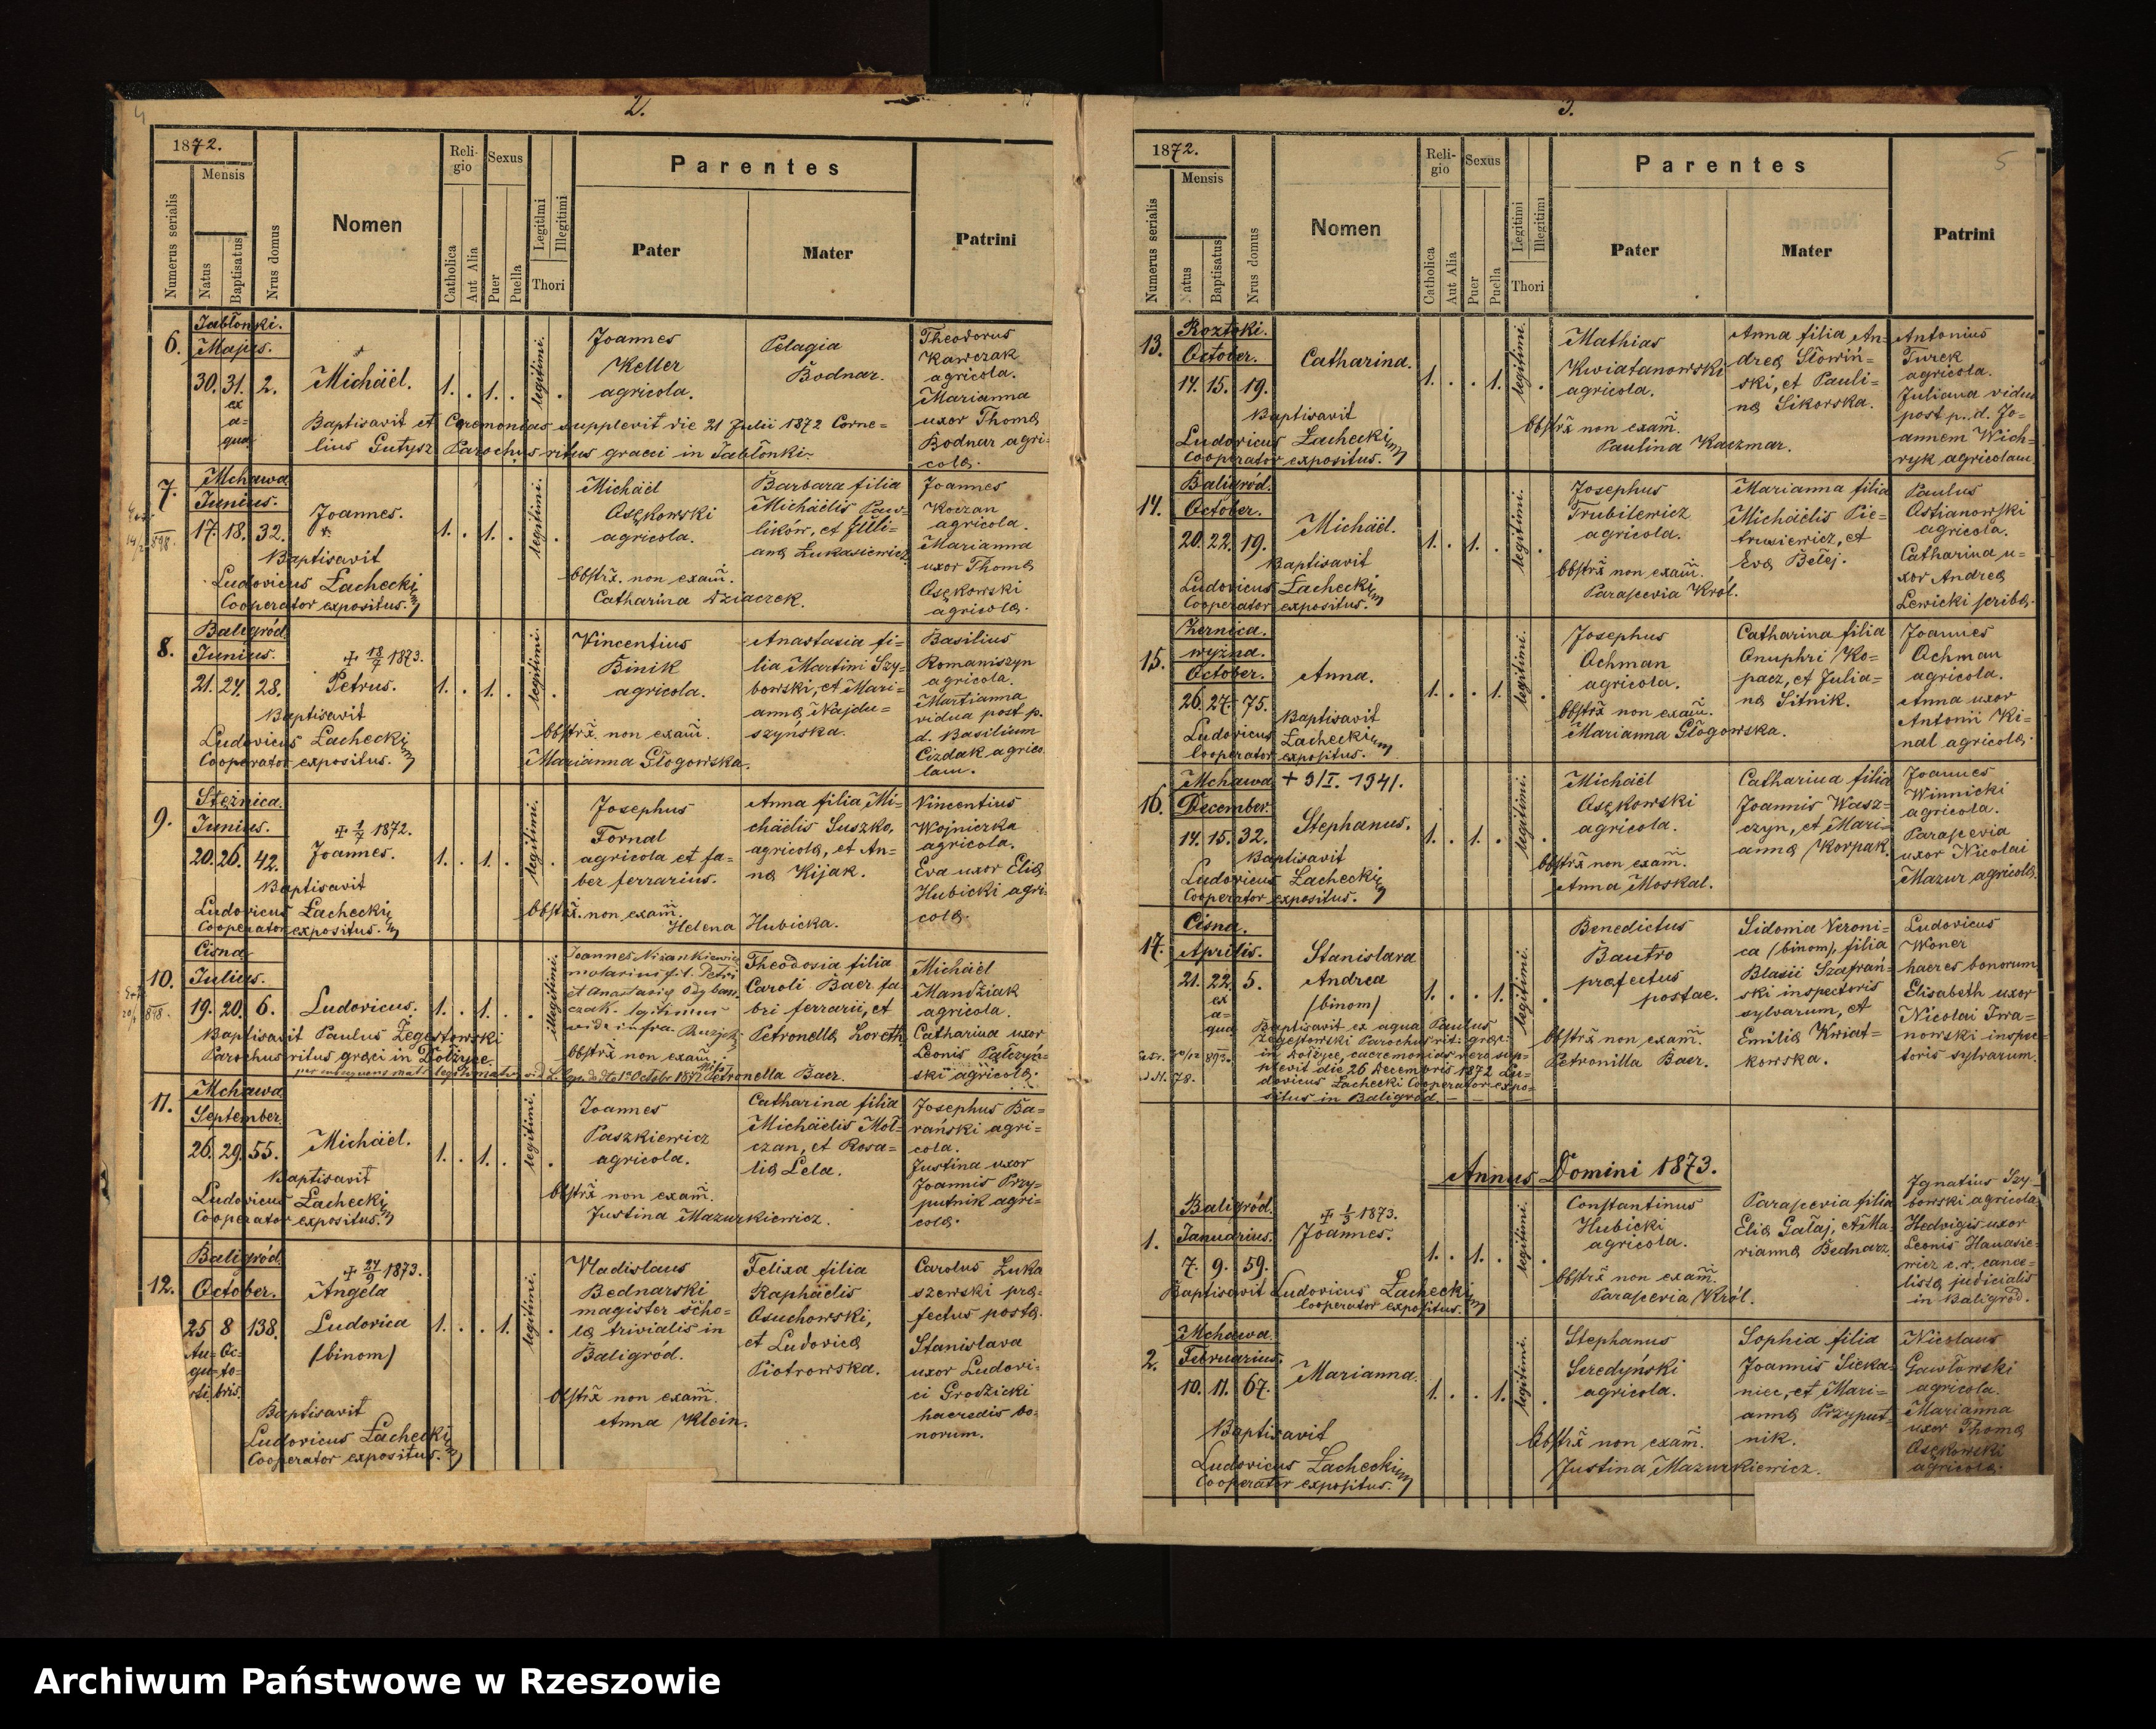 2.
1872.
Numerus serialis
Mensis
Natus
Baptisatus
Nrus domus
Nomen
Religio
Catholica
Aut Alia
Sexus
Puer
Puella
Legitimi
Illegitimi
Thori
Parentes
Pater
Mater
Patrini
6.
Jabłonki.
Majus.
30. 31. 2.
ex
a=
qua
Michäel.
1. . 1. . legitimi. .
Joannes
Keller
agricola.
Pelagia
Bodnar.
Theodorus
Kawczak
agricola.
Marianna
uxor Thomæ
Bodnar agri-
colæ.
Baptisavit et Cæremonias supplevit die 21 Julii 1872 Corne=
lius Gutysz Parochus ritus græci in Jabłonki.
7.
Mchawa
Junius.
17. 18. 32.
Joannes.
1. . 1. . legitimi. .
Michäel
Osękowski
agricola.
Barbara filia
Michäelis Paw-
lików, et Juli=
anæ Łukasiewicz.
Joannes
Koczan
agricola.
Marianna
uxor Thomæ
Osękowski
agricolæ.
Baptisavit
Ludovicus Łachecki
Cooperator expositus.
Obstrx. non exam.
Catharina Dziaczek.
8.
Baligród.
Junius.
21. 24. 28.
18/7 1873.
Petrus.
1. . 1. . legitimi. .
Vincentius
Binik
agricola.
Anastasia fi-
lia Martini Szy-
bowski, et Mari=
annæ Najdu=
szyńska.
Basilius
Romaniszyn
agricola.
Martianna
vidua post p.
d. Basilium
Cizdak agrico
lam.
Baptisavit
Ludovicus Łachecki
Cooperator expositus.
Obstrx. non exam.
Marianna Głogowska.
9.
Stężnica.
Junius.
20. 26. 42.
1/7 1872.
Joannes.
1. . 1. . legitimi. .
Josephus
Fornal
agricola et fa=
ber ferrarius.
Anna filia Mi=
chäelis Suszko,
agricolæ, et An=
næ Kijak.
Vincentius
Wojniczka
agricola.
Eva uxor Eliæ
Hubicki agri-
colæ.
Baptisavit
Ludovicus Łachecki
Cooperator expositus.
Obstrx. non exam.
Helena Hubicka.
10.
Cisna
Julius.
19. 20. 6.
Ludovicus.
1. . 1. . illegitimi.
Theodosia filia
Caroli Baer fa-
bri ferrarii, et
Petronellæ Loreth.
Michäel
Mandziak
agricola.
Catharina uxor
Leonis Pałczyń=
ski agricolæ.
Baptisavit Paulus Żegestowski
Parochus ritus græci in Dołżyce.
Obstrx non exam.
Petronella Baer.
11.
Mchawa
September.
26. 29. 55.
Michäel.
1. . 1. . legitimi. .
Joannes
Paszkiewicz
agricola.
Catharina filia
Michäelis Moł-
czan, et Rosa=
liæ Lela.
Josephus Ba=
rański agri=
cola.
Justina uxor
Joannis Przy-
putnik agri=
colæ.
Baptisavit
Ludovicus Łachecki
Cooperator expositus.
Obstrx non exam.
Justina Mazurkiewicz.
12.
Baligród
October.
25 8 138.
Au= Oc=
gu= to=
sti. bris.
24/9 1873.
Angela
Ludovica
(binom)
1. . . 1. legitimi. .
Vladislaus
Bednarski
magister scho=
læ trivialis in
Baligród.
Felixa filia
Raphäelis
Osuchowski,
et Ludovicæ
Piotrowska.
Carolus Łuka
szewski præ=
fectus postæ.
Stanislava
uxor Ludovi=
ci Grodzicki
hæredis bo=
norum.
Baptisavit
Ludovicus Łachecki
Cooperator expositus.
Obstrx non exam.
Anna Klein.
3.
5
1872.
Numerus serialis
Mensis
Natus
Baptisatus
Nrus domus
Nomen
Religio
Catholica
Aut Alia
Sexus
Puer
Puella
Legitimi
Illegitimi
Thori
Parentes
Pater
Mater
Patrini
13.
Roztoki.
October.
14. 15. 19.
Catharina.
1. . . 1. legitimi. .
Mathias
Kwiatanowski
agricola.
Anna filia An-
dreæ Słowiń=
ski, et Pauli=
næ Sikorska.
Antonius
Turek
agricola.
Juliana vidua
post p. d. Jo=
annem Wich=
ryk agricolam.
Baptisavit
Ludovicus Łachecki
Cooperator expositus.
Obstrx non exam.
Paulina Kaczmar.
14.
Baligród.
October.
20. 22. 19.
Michäel.
1. . 1. . legitimi. .
Josephus
Trubilewicz
agricola.
Marianna filia
Michäelis Pie=
trusiewicz, et
Evæ Bełej.
Paulus
Ostianowski
agricola.
Catharina u=
xor Andreæ
Lewicki scribæ.
Baptisavit
Ludovicus Łachecki
Cooperator expositus.
Obstrx non exam.
Parascevia Król.
15.
Żernica.
wyżna.
October.
26. 27. 75.
Anna.
1. . . 1. legitimi. .
Josephus
Ochman
agricola.
Catharina filia
Onuphri Ko=
pacz, et Julia=
næ Sitnik.
Joannes
Ochman
agricola.
Anna uxor
Antonii Ki=
nal agricolæ.
Baptisavit
Ludovicus Łachecki
Cooperator expositus.
Obstrx non exam.
Marianna Głogowska.
16.
Mchawa
December.
14. 15. 32.
+ 31/I. 1941.
Stephanus.
1. . 1. . legitimi. .
Michäel
Osękowski
agricola.
Catharina filia
Joannis Wasz=
czyn, et Mari=
annæ Korpak.
Joannes
Winnicki
agricola.
Parascevia
uxor Nicolai
Mazur agricolæ.
Baptisavit
Ludovicus Łachecki
Cooperator expositus.
Obstrx non exam.
Anna Moskal.
17.
Cisna.
Aprilis.
21. 22. 5.
ex
a=
qua
Stanislava
Andrea
(binom)
1. . . 1. legitimi. .
Benedictus
Bautro
præfectus
postae.
Sidonia Veroni=
ca (binom), filia
Blasii Szafrań=
ski inspectoris
sylvarum, et
Emiliæ Kwiat=
kowska.
Ludovicus
Woner
haeres bonorum
Elisabeth uxor
Nicolai Iwa=
nowski inspec=
toris sylvarum.
Baptisavit ex aqua Paulus
Żegestowski Parochus rit: græc:
in Dołżyce, caeremonias vero sup=
plevit die 26 Decembris 1872 Lu=
dovicus Łachecki Cooperator expo=
situs in Baligród.
Obstrx non exam.
Petronilla Baer.
Annus Domini 1873.
1.
Baligród.
Januarius.
7. 9. 59.
1/3 1873.
Joannes.
1. . 1. . legitimi. .
Constantinus
Hubicki
agricola.
Parascevia filia
Eliæ Gałaj, et Ma-
riannæ Bednarz.
Ignatius Szy-
bowski agricola
Hedvigis uxor
Leonis Hanasie-
wicz c. r. cance=
listæ judicialis
in Baligród.
Baptisavit Ludovicus Łachecki
Cooperator expositus.
Obstrx non exam.
Parascevia Król.
2.
Mchawa.
Februarius.
10. 11. 67.
Marianna.
1. . . 1. legitimi. .
Stephanus
Seredyński
agricola.
Sophia filia
Joannis Sieka=
niec, et Mari=
annæ Przyput=
nik.
Nicolaus
Gawłowski
agricola.
Marianna
uxor Thomæ
Osękowski
agricolæ.
Baptisavit
Ludovicus Łachecki
Cooperator expositus.
Obstrx non exam.
Justina Mazurkiewicz.
Archiwum Państwowe w Rzeszowie